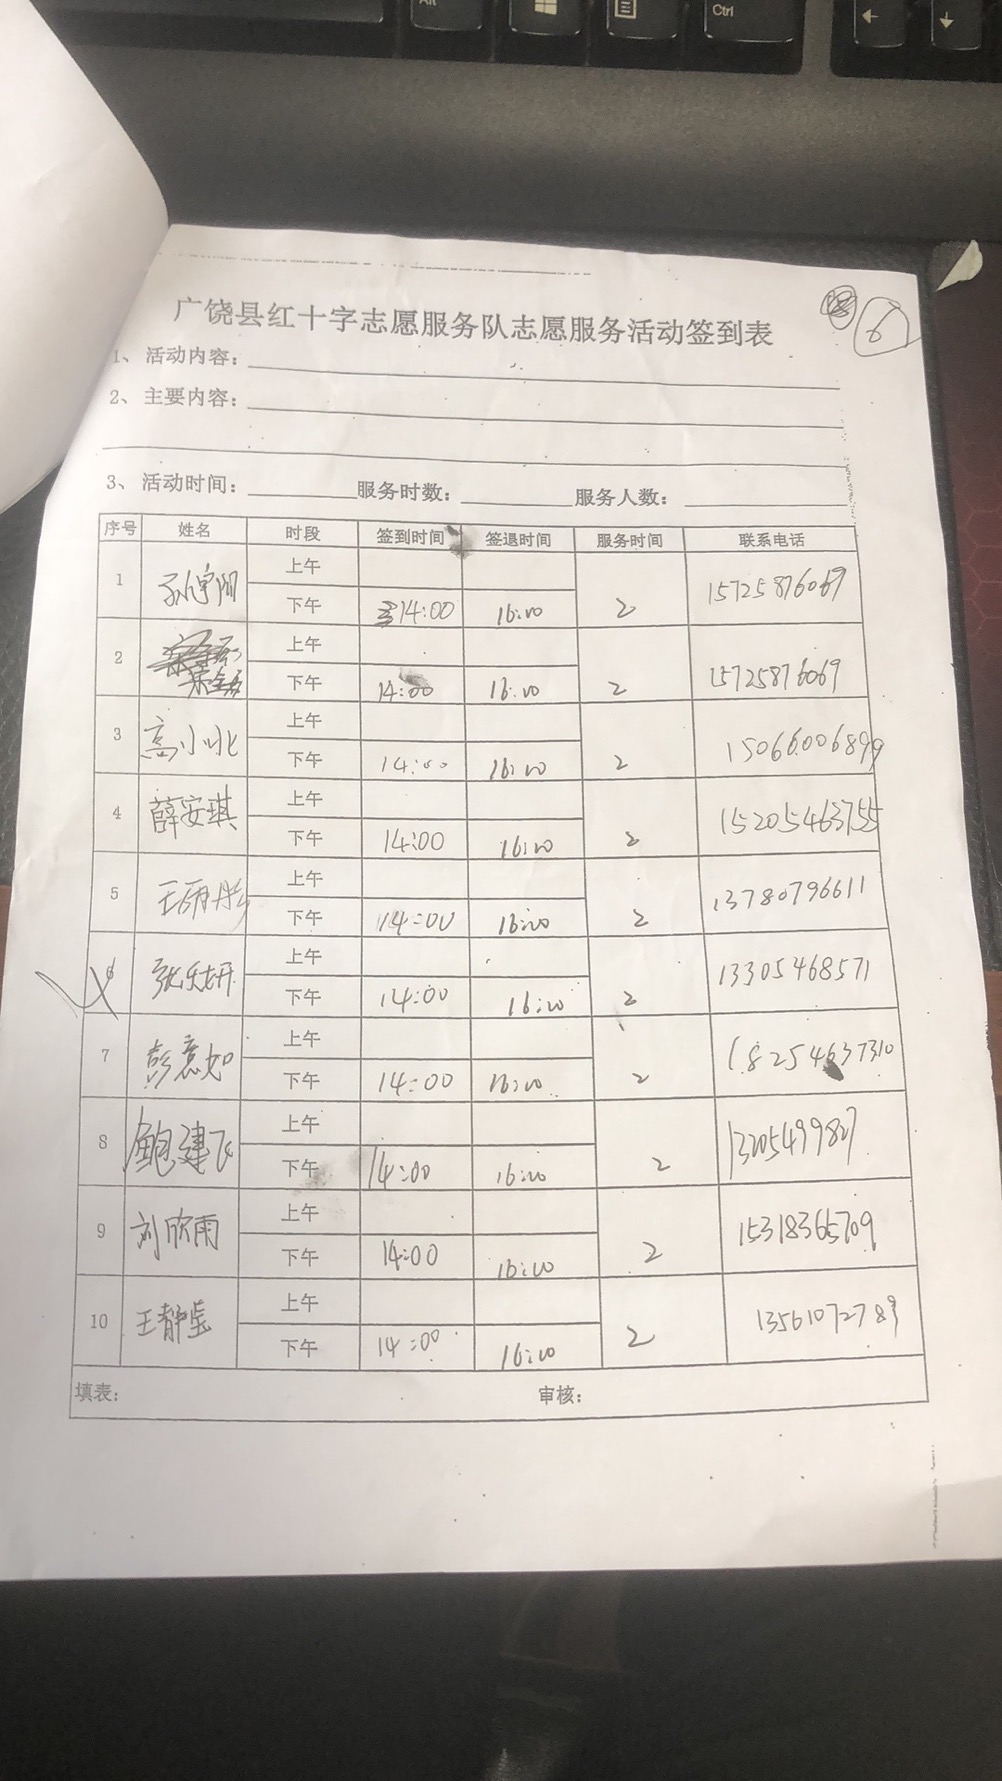 Alt
Ctrl
广饶县红十字志愿服务队志愿服务活动签到表
6
1、活动内容：
2、主要内容：
3、活动时间： 服务时数： 服务人数：
序号 姓名 时段 签到时间 签退时间 服务时间 联系电话
1 上午
下午 14:00 16:00 2 15725876069
2 上午
下午 14:00 16:00 2 15725876069
3 高小 上午
下午 14:00 16:00 2 15066006899
4 薛安琪 上午
下午 14:00 16:00 2 15205463755
5 上午
下午 14:00 16:00 2 13780796611
6 上午
下午 14:00 16:00 2 13305468571
7 彭意如 上午
下午 14:00 16:00 2 18254637310
8 鲍建飞 上午
下午 14:00 16:00 2
9 刘欣雨 上午
下午 14:00 16:00 2 15318365709
10 王静莹 上午
下午 14:00 16:00 2 13561072789
填表： 审核：